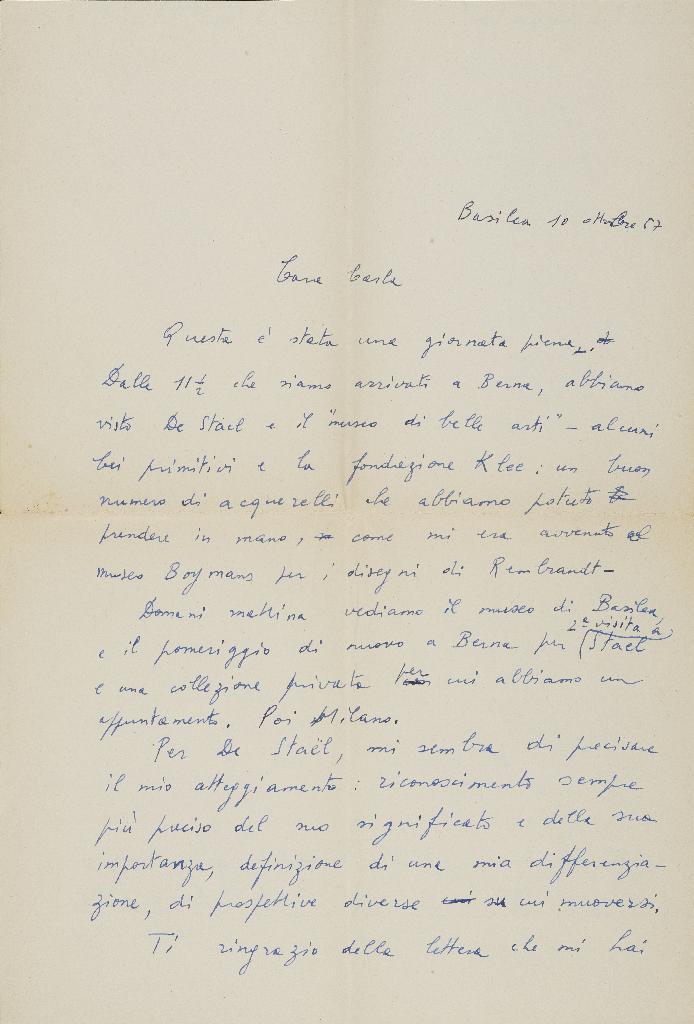 Basilea 10 ottobre 57
Cara Carla
Questa è stata una giornata piena.
Dalle 11 1/2 che siamo arrivati a Berna, abbiamo
visto De Staël e il "museo di belle arti" – alcuni
bei primitivi e la fondazione Klee: un buon
numero di acquerelli che abbiamo potuto
prendere in mano, come mi era avvenuto al
museo Boymans per i disegni di Rembrandt –
Domani mattina vediamo il museo di Basilea,
e il pomeriggio di nuovo a Berna per (2ª visita a) Staël
e una collezione privata per cui abbiamo un
appuntamento. Poi Milano.
Per De Staël, mi sembra di precisare
il mio atteggiamento: riconoscimento sempre
più preciso del suo significato e della sua
importanza, definizione di una mia differenzia-
zione, di prospettive diverse su cui muoversi.
Ti ringrazio della lettera che mi hai